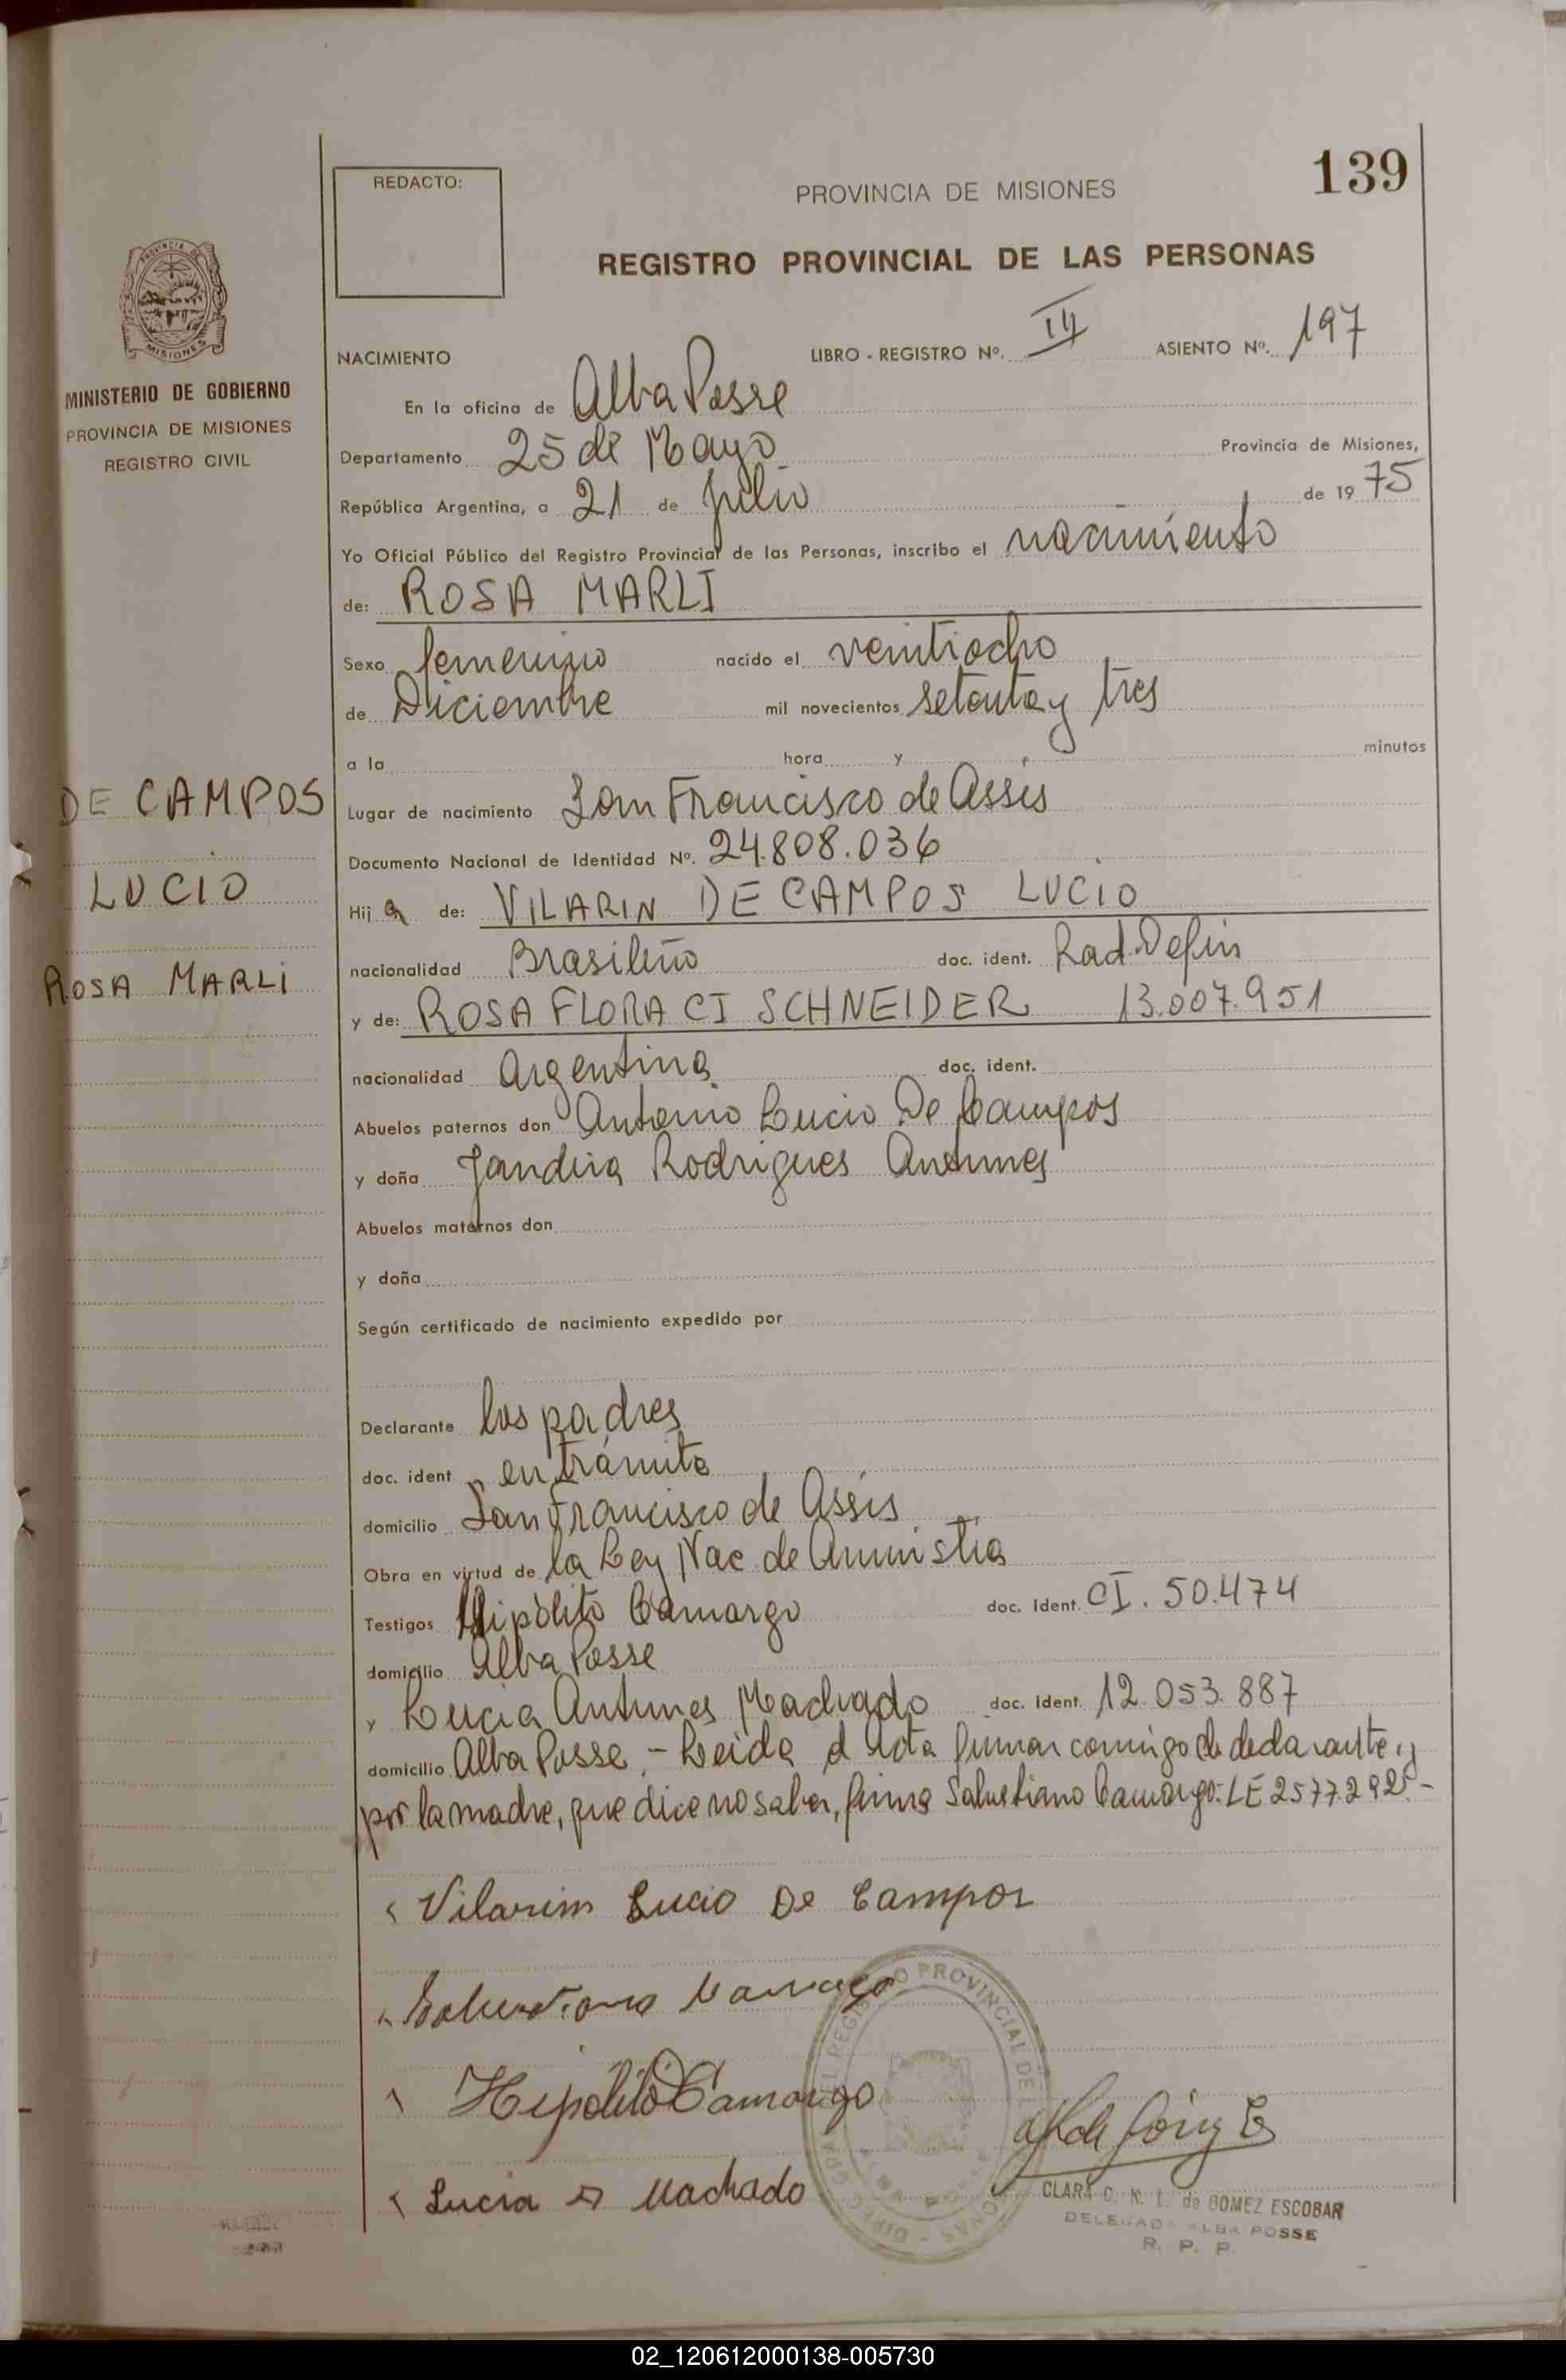 139
REDACTO:
PROVINCIA DE MISIONES
REGISTRO PROVINCIAL DE LAS PERSONAS
MISIONES
MINISTERIO DE GOBIERNO
PROVINCIA DE MISIONES
REGISTRO CIVIL
NACIMIENTO LIBRO - REGISTRO Nº. III ASIENTO Nº. 197
En la oficina de Alba Posse
Departamento 25 de Mayo Provincia de Misiones,
República Argentina, a 21 de Julio de 19 75
Yo Oficial Público del Registro Provincial de las Personas, inscribo el nacimiento
de: ROSA MARLI
Sexo femenino nacido el veintiocho
de Diciembre mil novecientos setenta y tres
a la hora y minutos
DE CAMPOS
LUCIO
ROSA MARLI
Lugar de nacimiento San Francisco de Assis
Documento Nacional de Identidad Nº. 24.808.036
Hij a de: VILARIN DE CAMPOS LUCIO
nacionalidad Brasileño doc. ident. Rad. Defin
y de: ROSA FLORA CI SCHNEIDER 13.007.951
nacionalidad Argentina doc. ident.
Abuelos paternos don Antonio Lucio De Campos
y doña Jandira Rodrigues Antunes
Abuelos maternos don
y doña
Según certificado de nacimiento expedido por
Declarante los padres
doc. ident en trámite
domicilio San Francisco de Assis
Obra en virtud de la Ley Nac. de Amnistia
Testigos Hipólito Camargo doc. Ident. CI. 50.474
domicilio Alba Posse
y Lucia Antunes Machado doc. Ident. 12.053.887
domicilio Alba Posse. - Leida el Acta firman conmigo el declarante, y
por la madre, que dice no saber, firma Salustiano Camargo. LE 2577.292.-
Vilarim Lucio De Campos
Salustiano Camargo
Hipólito Camargo
Lucia A Machado
CLARA C. N. L. de GOMEZ ESCOBAR
DELEGADA ALBA POSSE
R. P. P.
02_120612000138-005730